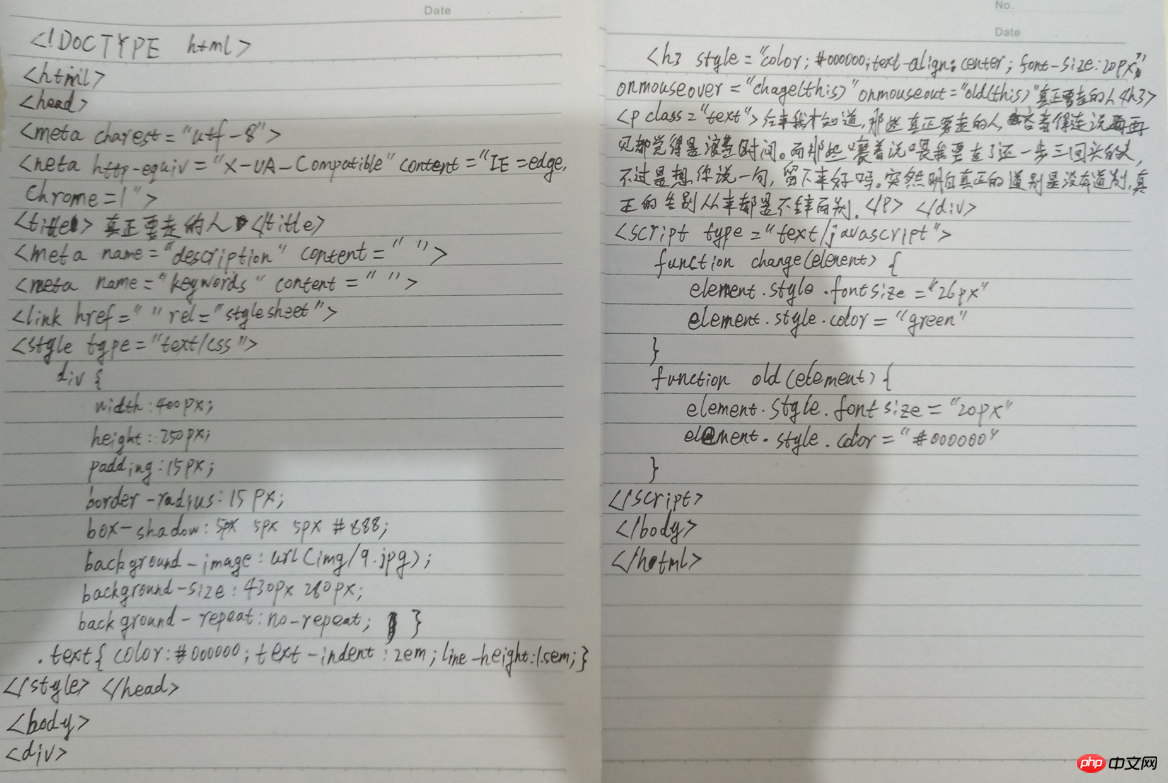 Date
<!DOCTYPE html>
<html>
<head>
<meta charest="utf-8">
<meta http-equiv="X-UA-Compatible" content="IE=edge,
Chrome=1">
<title>真正要走的人</title>
<meta name="description" content=" ">
<meta name="keywords" content=" ">
<link href=" " rel="stylesheet">
<style type="text/css">
div {
width:400px;
height:250px;
padding:15px;
border-radius:15px;
box-shadow:5px 5px 5px #888;
background-image:url(img/9.jpg);
background-size:430px 280px;
background-repeat:no-repeat; }
.text{ color:#000000; text-indent:2em; line-height:1.5em; }
</style> </head>
<body>
<div>
No.
Date
<h3 style="color:#000000;text-align:center; font-size:20px;"
onmouseover="chage(this)" onmouseout="old(this)"真正要走的人<h3>
<p class="text">后来我才知道,那些真正要走的人 连说再
见都觉得是浪费时间。而那些嚷着说喂我要走了还一步三回头的人,
不过是想你说一句,留下来好吗。突然明白真正的道别是没有道别,真
正的告别从来都是不辞而别。</p> </div>
<script type="text/javascript">
function change(element) {
element.style.fontsize="26px"
element.style.color="green"
}
function old(element) {
element.style.fontsize="20px"
element.style.color="#000000"
}
</script>
</body>
</html>
php 中文网